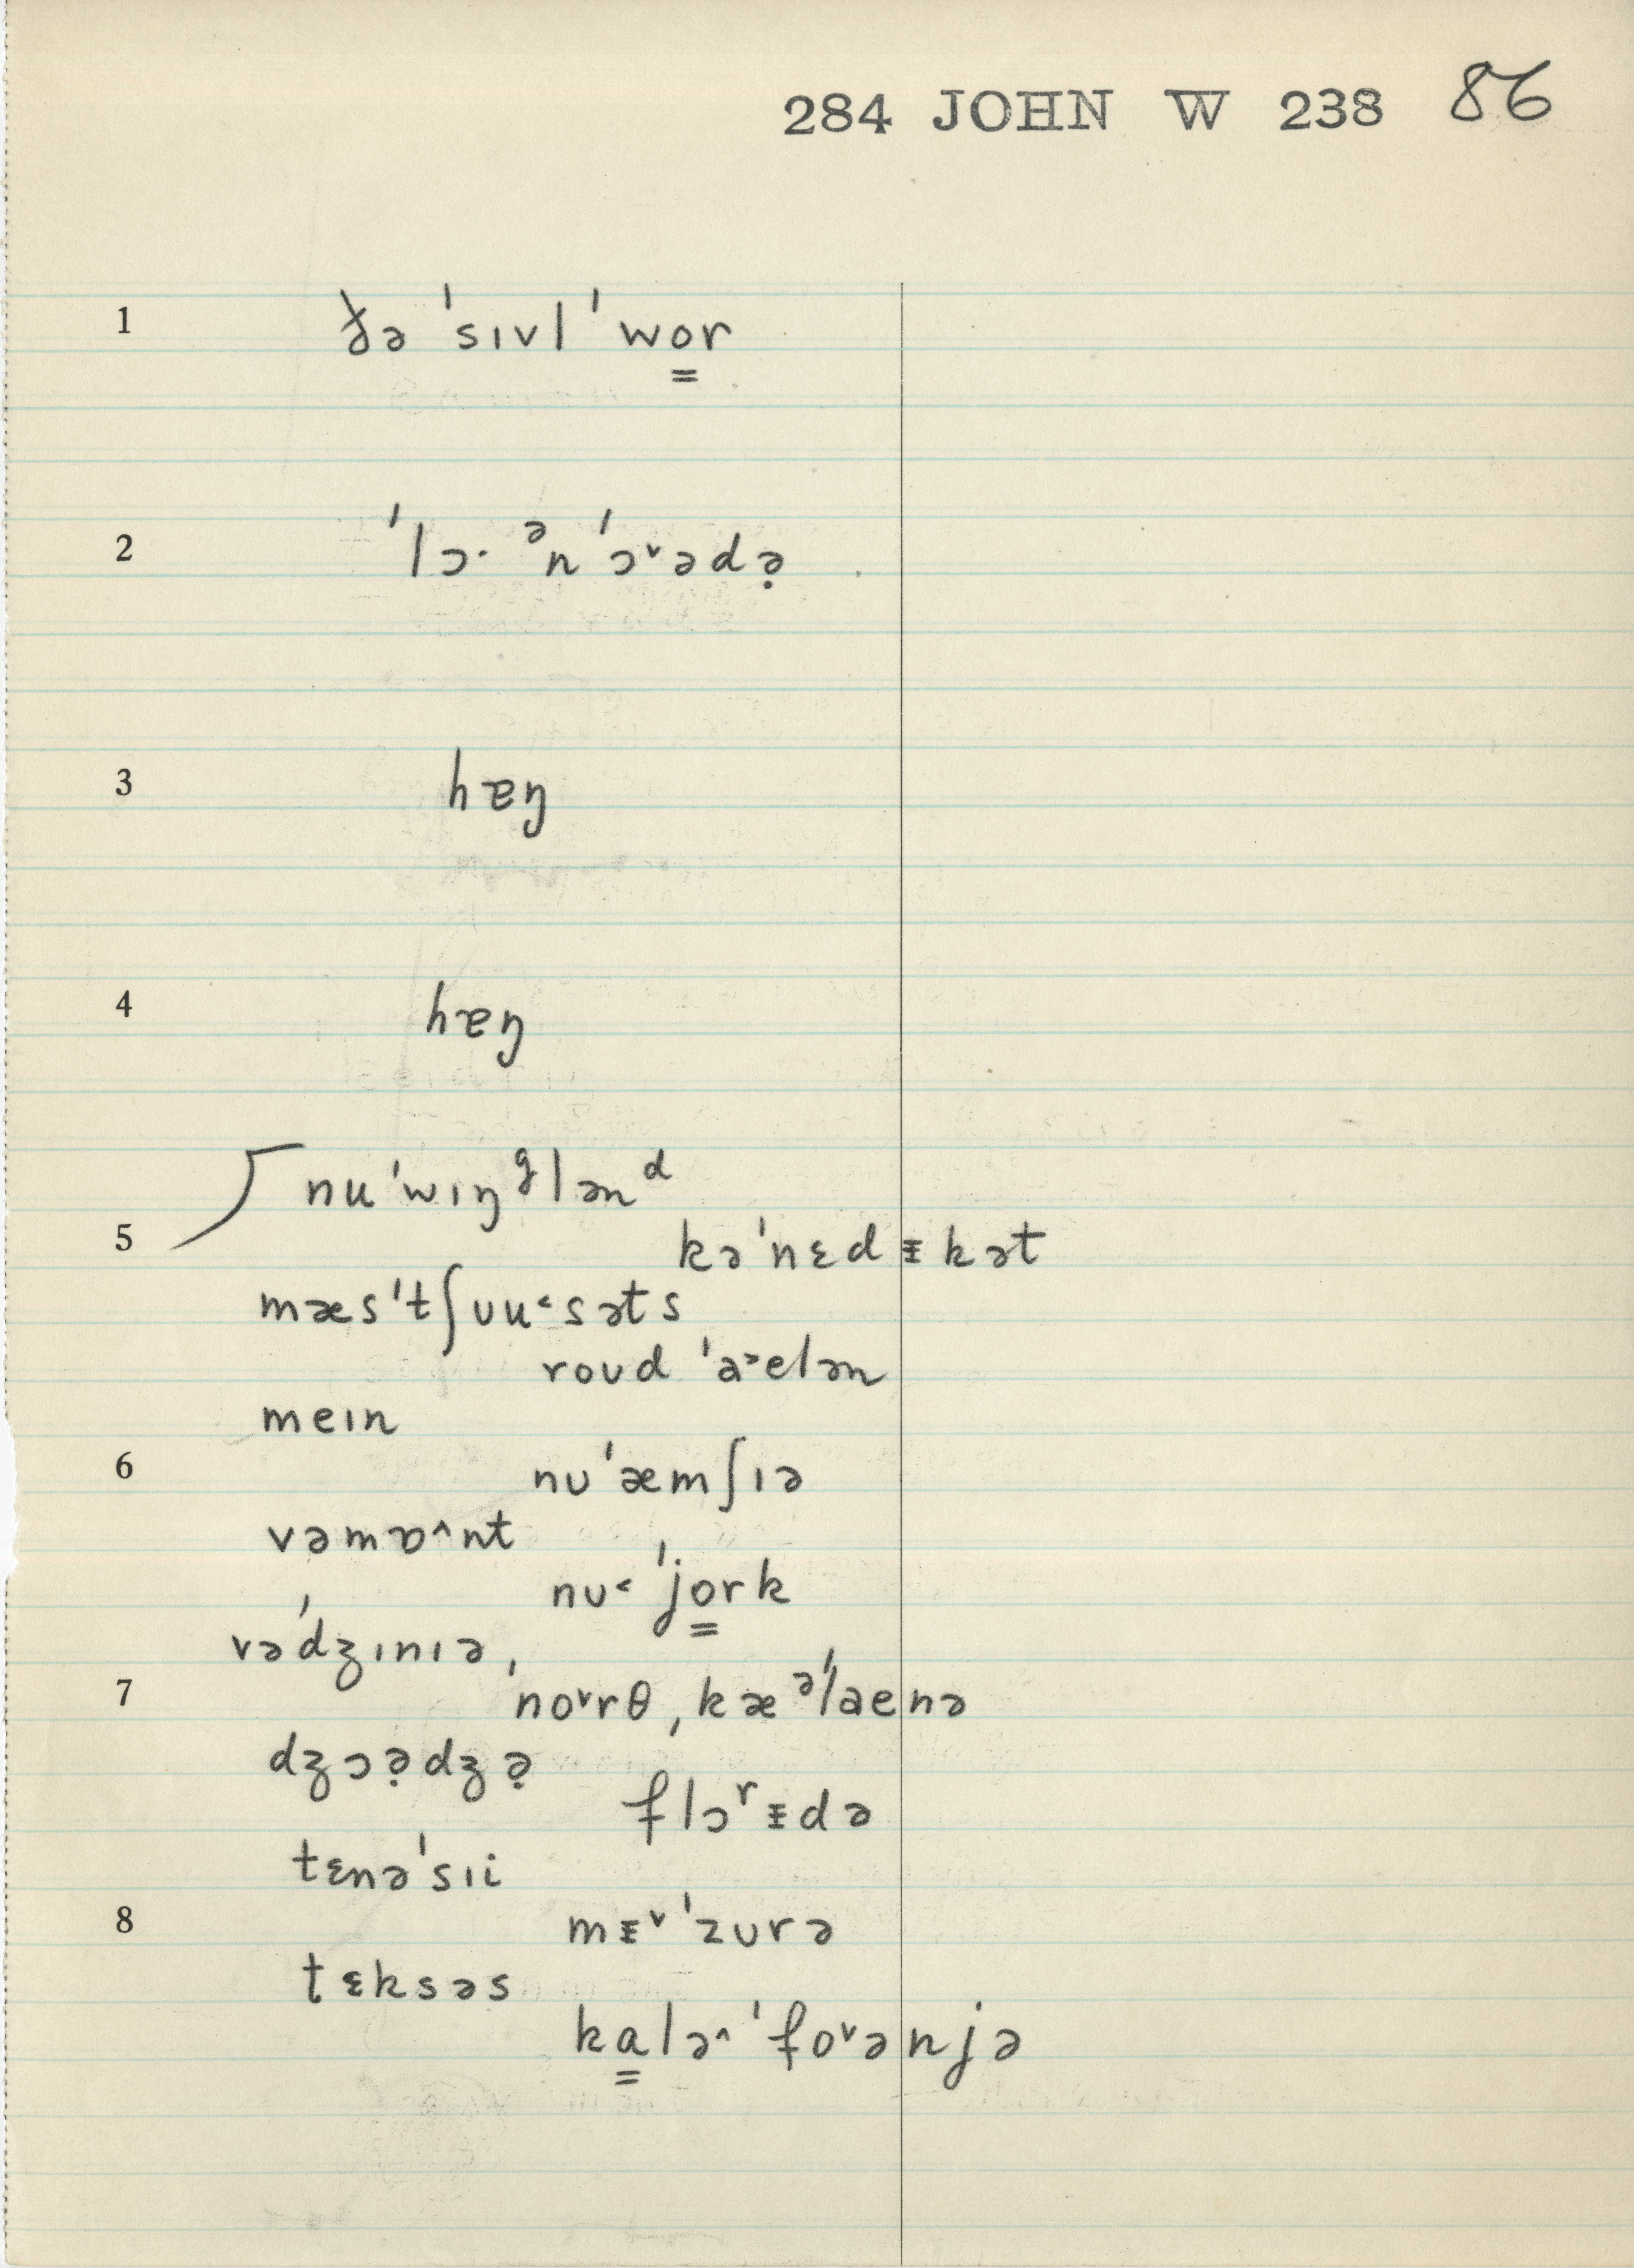 284 JOHN W 238 86
1 ðə ˈsɪvl ˈwo͇r
2 ˈlɔ· ᵊn ˈɔ˅ədə̣
3 hæŋ
4 hæŋ
nuˈwɪŋᵍlənᵈ
5 kəˈnɛdᵻkət
mæsˈtʃʊu˂səts
roʊd ˈa˃elən
meɪn
6 nʊˈæmʃɪə
vəmɒ˄nt
nʊ˂ ˈjo͇rk
vəˈdʒɪnɪə,
7 ˈno˅rθ ˌkæᵊˈlaenə
dʒɔə̣dʒə̣
flɔʳᵻdə
tɛnəˈsɪi
8 mᵻ˅ˈzʊrə
tɛksəs
ka͇lə˄ˈfo˅ənjə